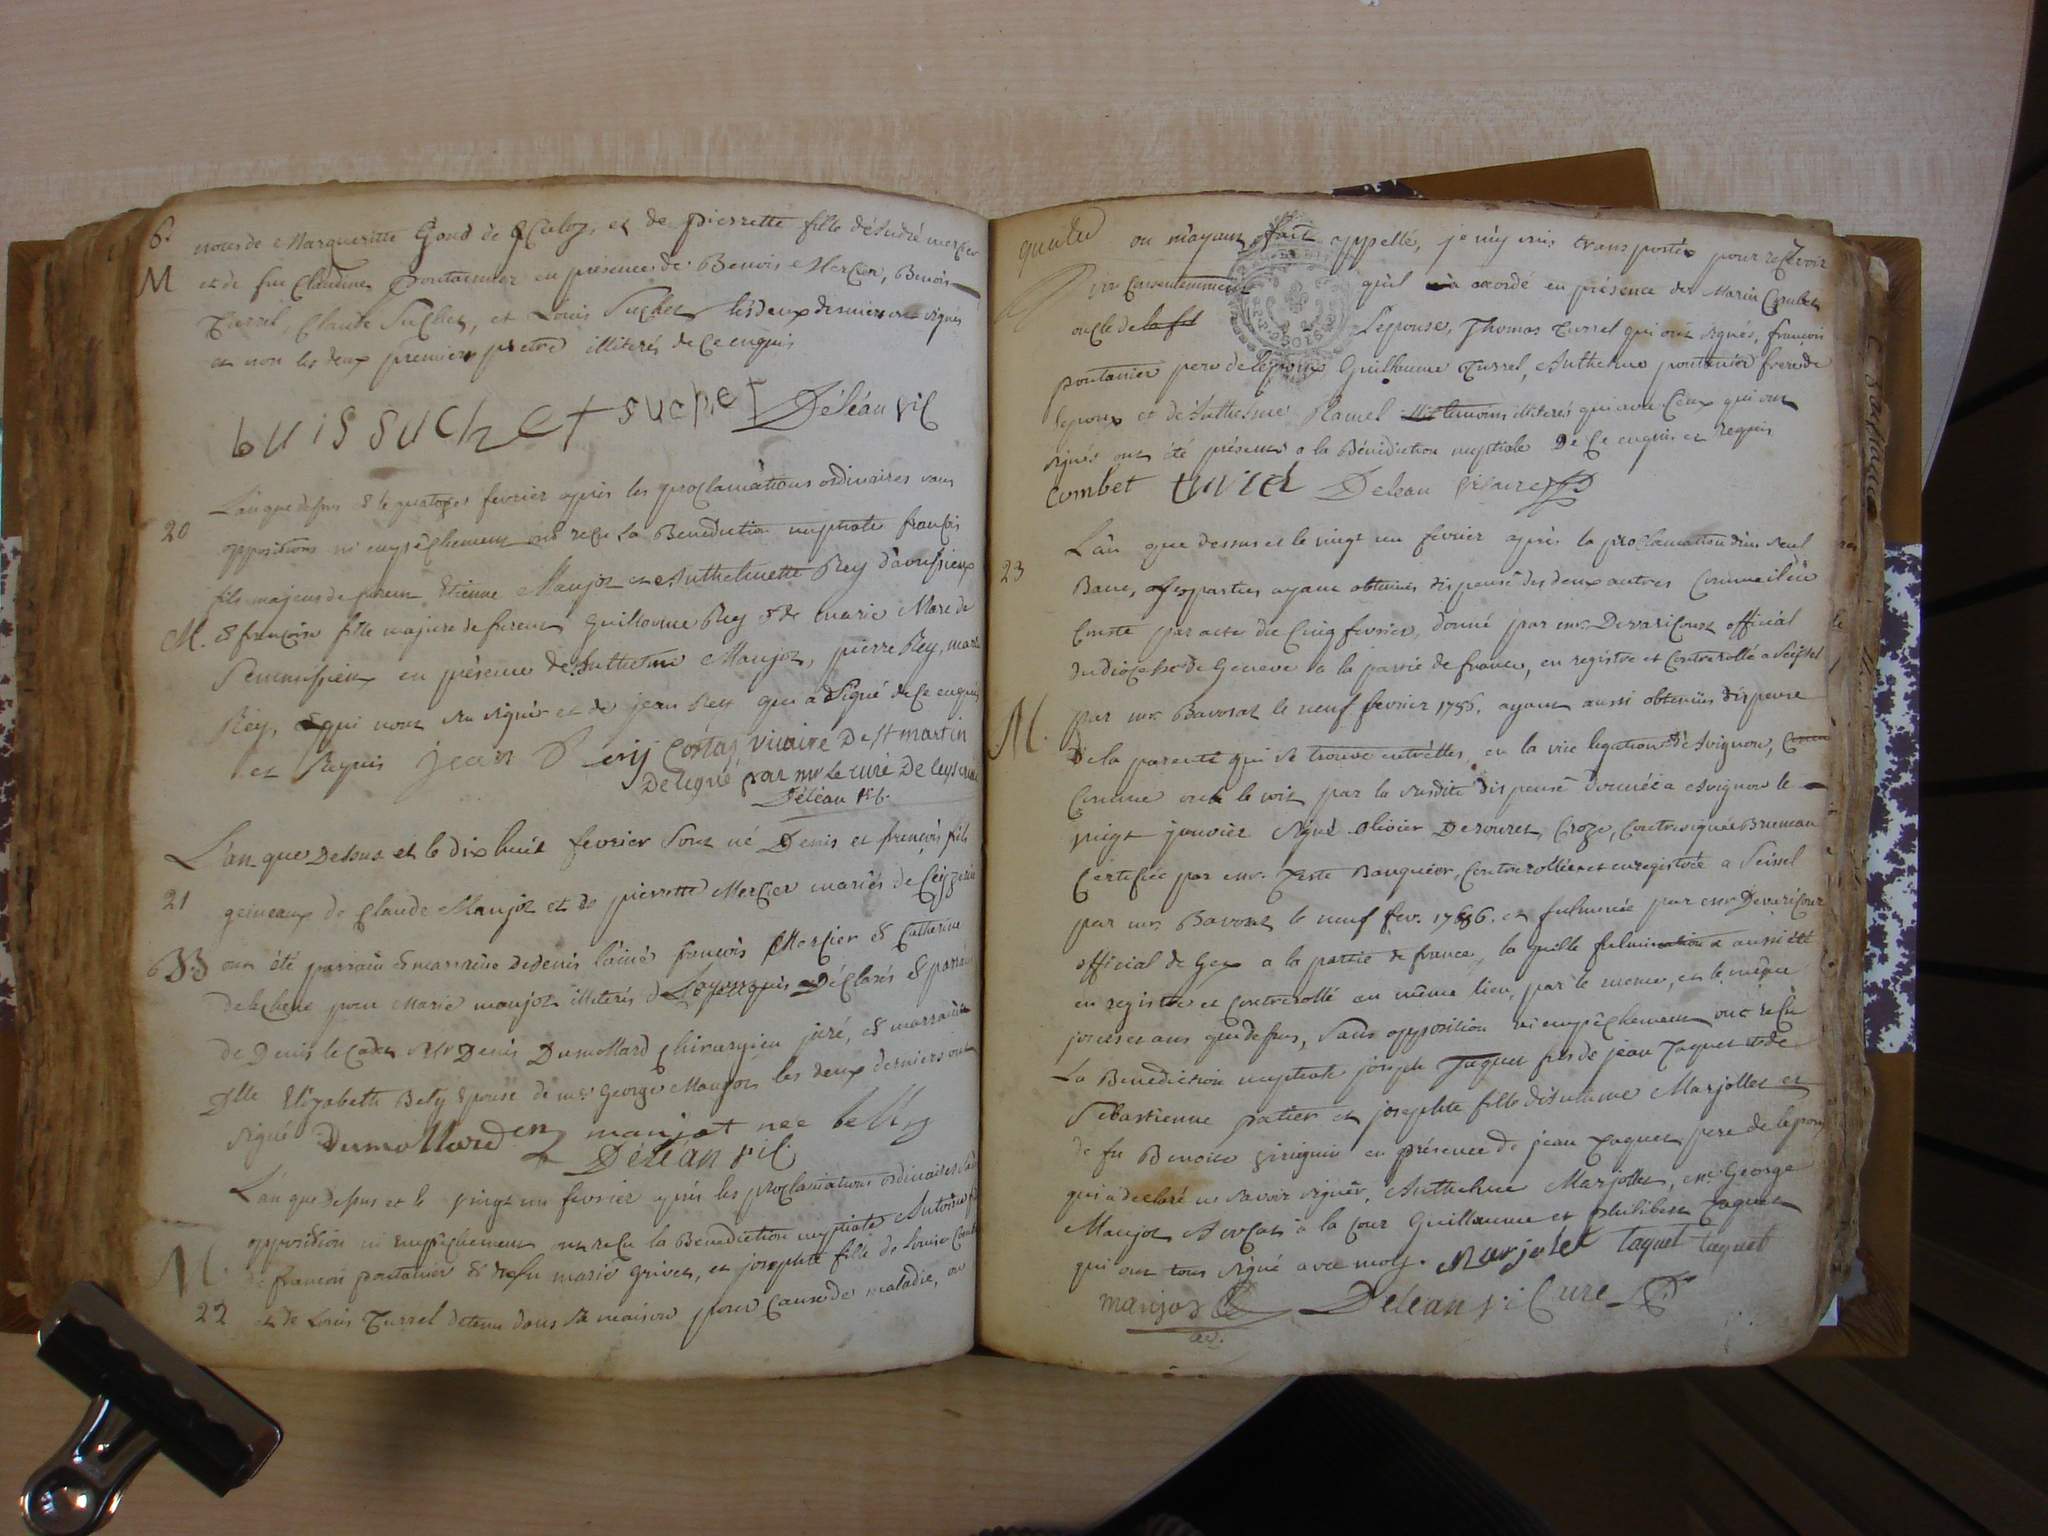 6.
M
nous de Margueritte Goud de Culoz, et de pierrette fille d'André mercier
et de feu Claudine pontannier en présence de Benoit Mercier, Benoit
Turrel, Claude Suchet, et Louis Suchet les deux derniers ont signés
et non les deux premiers pr etre illiterés de ce enquis
Luis suchet suchet Déléan vic
L'an que dessus & le quatorze fevrier après les proclamations ordinaires sans
20
oppositions ni empêchement ont reçu La Benediction nuptiale françois
fils majeur de feu Etienne Maujot et Anthelmette Rey d'avrissieux
M. & françoise fille majeure de feu Guillaume Rey & de marie Mare de
en présence de Anthelme Maujot, pierre Rey, marin
Rey, qui n'ont su signer et de jean Rey qui a signé de ce enquis
et Requis jean Rey Costaz vicaire De st martin
Delegué par mr Le curé De
Déléan vic.
L'an que Dessus et le dix huit fevrier sont né Denis et françois fils
21
gemeaux de Claude Maujot et de pierrette Mercier mariés de Ceizerieu
BB ont été parrain & marraine de denis l'ainé françois Mercier & Catherine
pour Marie maujot illiterés Déclarés & parrain
de Denis le cadet Mr Denis Dumollard Chirurgien juré, & marraine
Dlle Elizabeth Bely Epouse de mr George Maujot les deux derniers ont
signé Dumollard maujot née belly
Déléan vic.
L'an que dessus et le vingt un fevrier après les proclamations ordinaires sans
opposition ni empêchement ont reçu la Benediction nuptiale Antoine fils
M. de francois pontanier & de feu marie Grivet, et josephte fille de Louise Combet
22 et de Louis Turrel detenu dans sa maison pour cause de maladie, ou
ou m'ayant fait appellé, je m'y suis transporté pour reçevoir
son Consentement qu'il m'a accordé en présence de Marin Combet
oncle de Lepouse, Thomas Turrel qui ont signés, françois
pontanier pere de lepoux Guillaume Turrel, Anthelme pontanier frere de
lepoux et de Anthelme Ramel temoins illiterés qui avec Ceux qui ont
signés ont été présents a la Bénédiction nuptiale De Ce enquis et requis
Combet turrel Deléan vicaire
L'an que dessus et le vingt un fevrier après la proclamation d'un seul
23
Banc, les parties ayant obtenus dispense des deux autres Comme il en
Conste par acte du Cinq fevrier, donné par mr Devaricourt official
du diocese de Geneve a la partie de france, en registré et Contrerollé a Seissel
par mr Bavozat le neuf fevrier 1786. ayant aussi obtenus dispense
M.
De la parenté qui se trouve entr'elles, en la vice legation d'Avignon,
Comme on le voit par la susdite dispense donnée a Avignon le
vingt janvier signé olivier Contresignée
Certifiée par mr Teste Banquier, Contrerollée et enregistrée a Seissel
par mr Bavozat le neuf fev. 1786. et fulminée par mr Devaricourt
official de Gex a la partie de france, la quelle fulmination a aussi été
en registrée et Contrerollé au même lieu, par le meme, et le même
jour et ans que dessus, Sans opposition ni empêchement ont reçu
La Benediction nuptiale joseph Taquet fils de jean Taquet et de
Sebastienne patier et josephte fille d'Antoine Marjollet et
de feu Benoite en présence de jean Taquet pere de lepoux
qui a declaré ne savoir signer, Anthelme Marjollet, mr George
Maujot Avocat à la Cour Guillaume et philibert Taquet
qui ont tous signé avec moy. Marjolet taquet taquet
maujot Déléan viCaire
av.